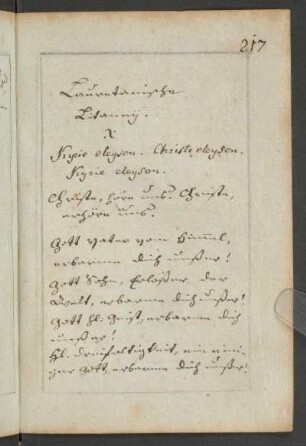 217
Lauretanische
Litanny.
X
Kyrie eleyson. Christe eleyson.
Kyrie eleyson.
Christe, höre uns. Christe,
erhöre uns.
Gott Vater vom Himmel,
erbarme dich unser!
Gott Sohn, Erlößer der
Welt, erbarme dich unser!
Gott hl: Geist, erbarme dich
unser!
Hl. dreyfaltigkeit, ein eini-
ger Gott, erbarme dich unser!